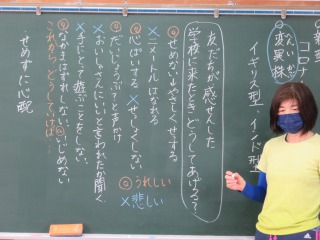 ㋙ 新型
コロナ
㋙ 変異株
へんい かぶ
イギリス型 インド型
友だちが感せんした
学校に来たとき、どうしてあげる？
せめない。やさしくせっする
2メートルはなれる
心ぱいする
×やさしくない
だいじょうぶ？ときく
おいしゃさんにいいと言われたか聞く
×手にとって遊ぶことをしない。
なかまはずれしない
いじめない
これからどうしていけば…
せめずに心配
うれしい
×悲しい